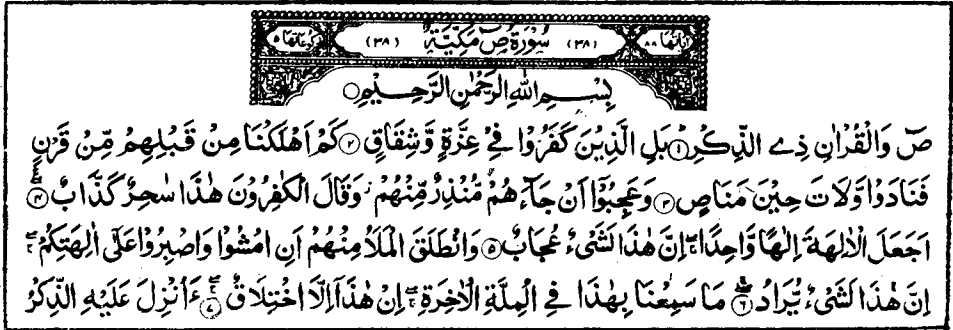 اٰیَاتُهَا ۸۸ (۳۸) سُوْرَةُ صٓ مَكِّيَّةٌ (۳۸) رُكُوْعَاتُهَا ۵
بِسْمِ اللّٰهِ الرَّحْمٰنِ الرَّحِيْمِ
صٓ وَالْقُرْاٰنِ ذِی الذِّكْرِ ۱ بَلِ الَّذِيْنَ كَفَرُوْا فِیْ عِزَّةٍ وَّشِقَاقٍ ۲ كَمْ اَهْلَكْنَا مِنْ قَبْلِهِمْ مِّنْ قَرْنٍ
فَنَادَوْا وَّلَاتَ حِيْنَ مَنَاصٍ ۳ وَعَجِبُوْٓا اَنْ جَآءَهُمْ مُّنْذِرٌ مِّنْهُمْ ز وَقَالَ الْكٰفِرُوْنَ هٰذَا سٰحِرٌ كَذَّابٌ ۴
اَجَعَلَ الْاٰلِهَةَ اِلٰهًا وَّاحِدًا اِنَّ هٰذَا لَشَیْءٌ عُجَابٌ ۵ وَانْطَلَقَ الْمَلَاُ مِنْهُمْ اَنِ امْشُوْا وَاصْبِرُوْا عَلٰٓی اٰلِهَتِكُمْ
اِنَّ هٰذَا لَشَیْءٌ يُّرَادُ ۶ مَا سَمِعْنَا بِهٰذَا فِی الْمِلَّةِ الْاٰخِرَةِ اِنْ هٰذَآ اِلَّا اخْتِلَاقٌ ۷ ءَاُنْزِلَ عَلَيْهِ الذِّكْرُ